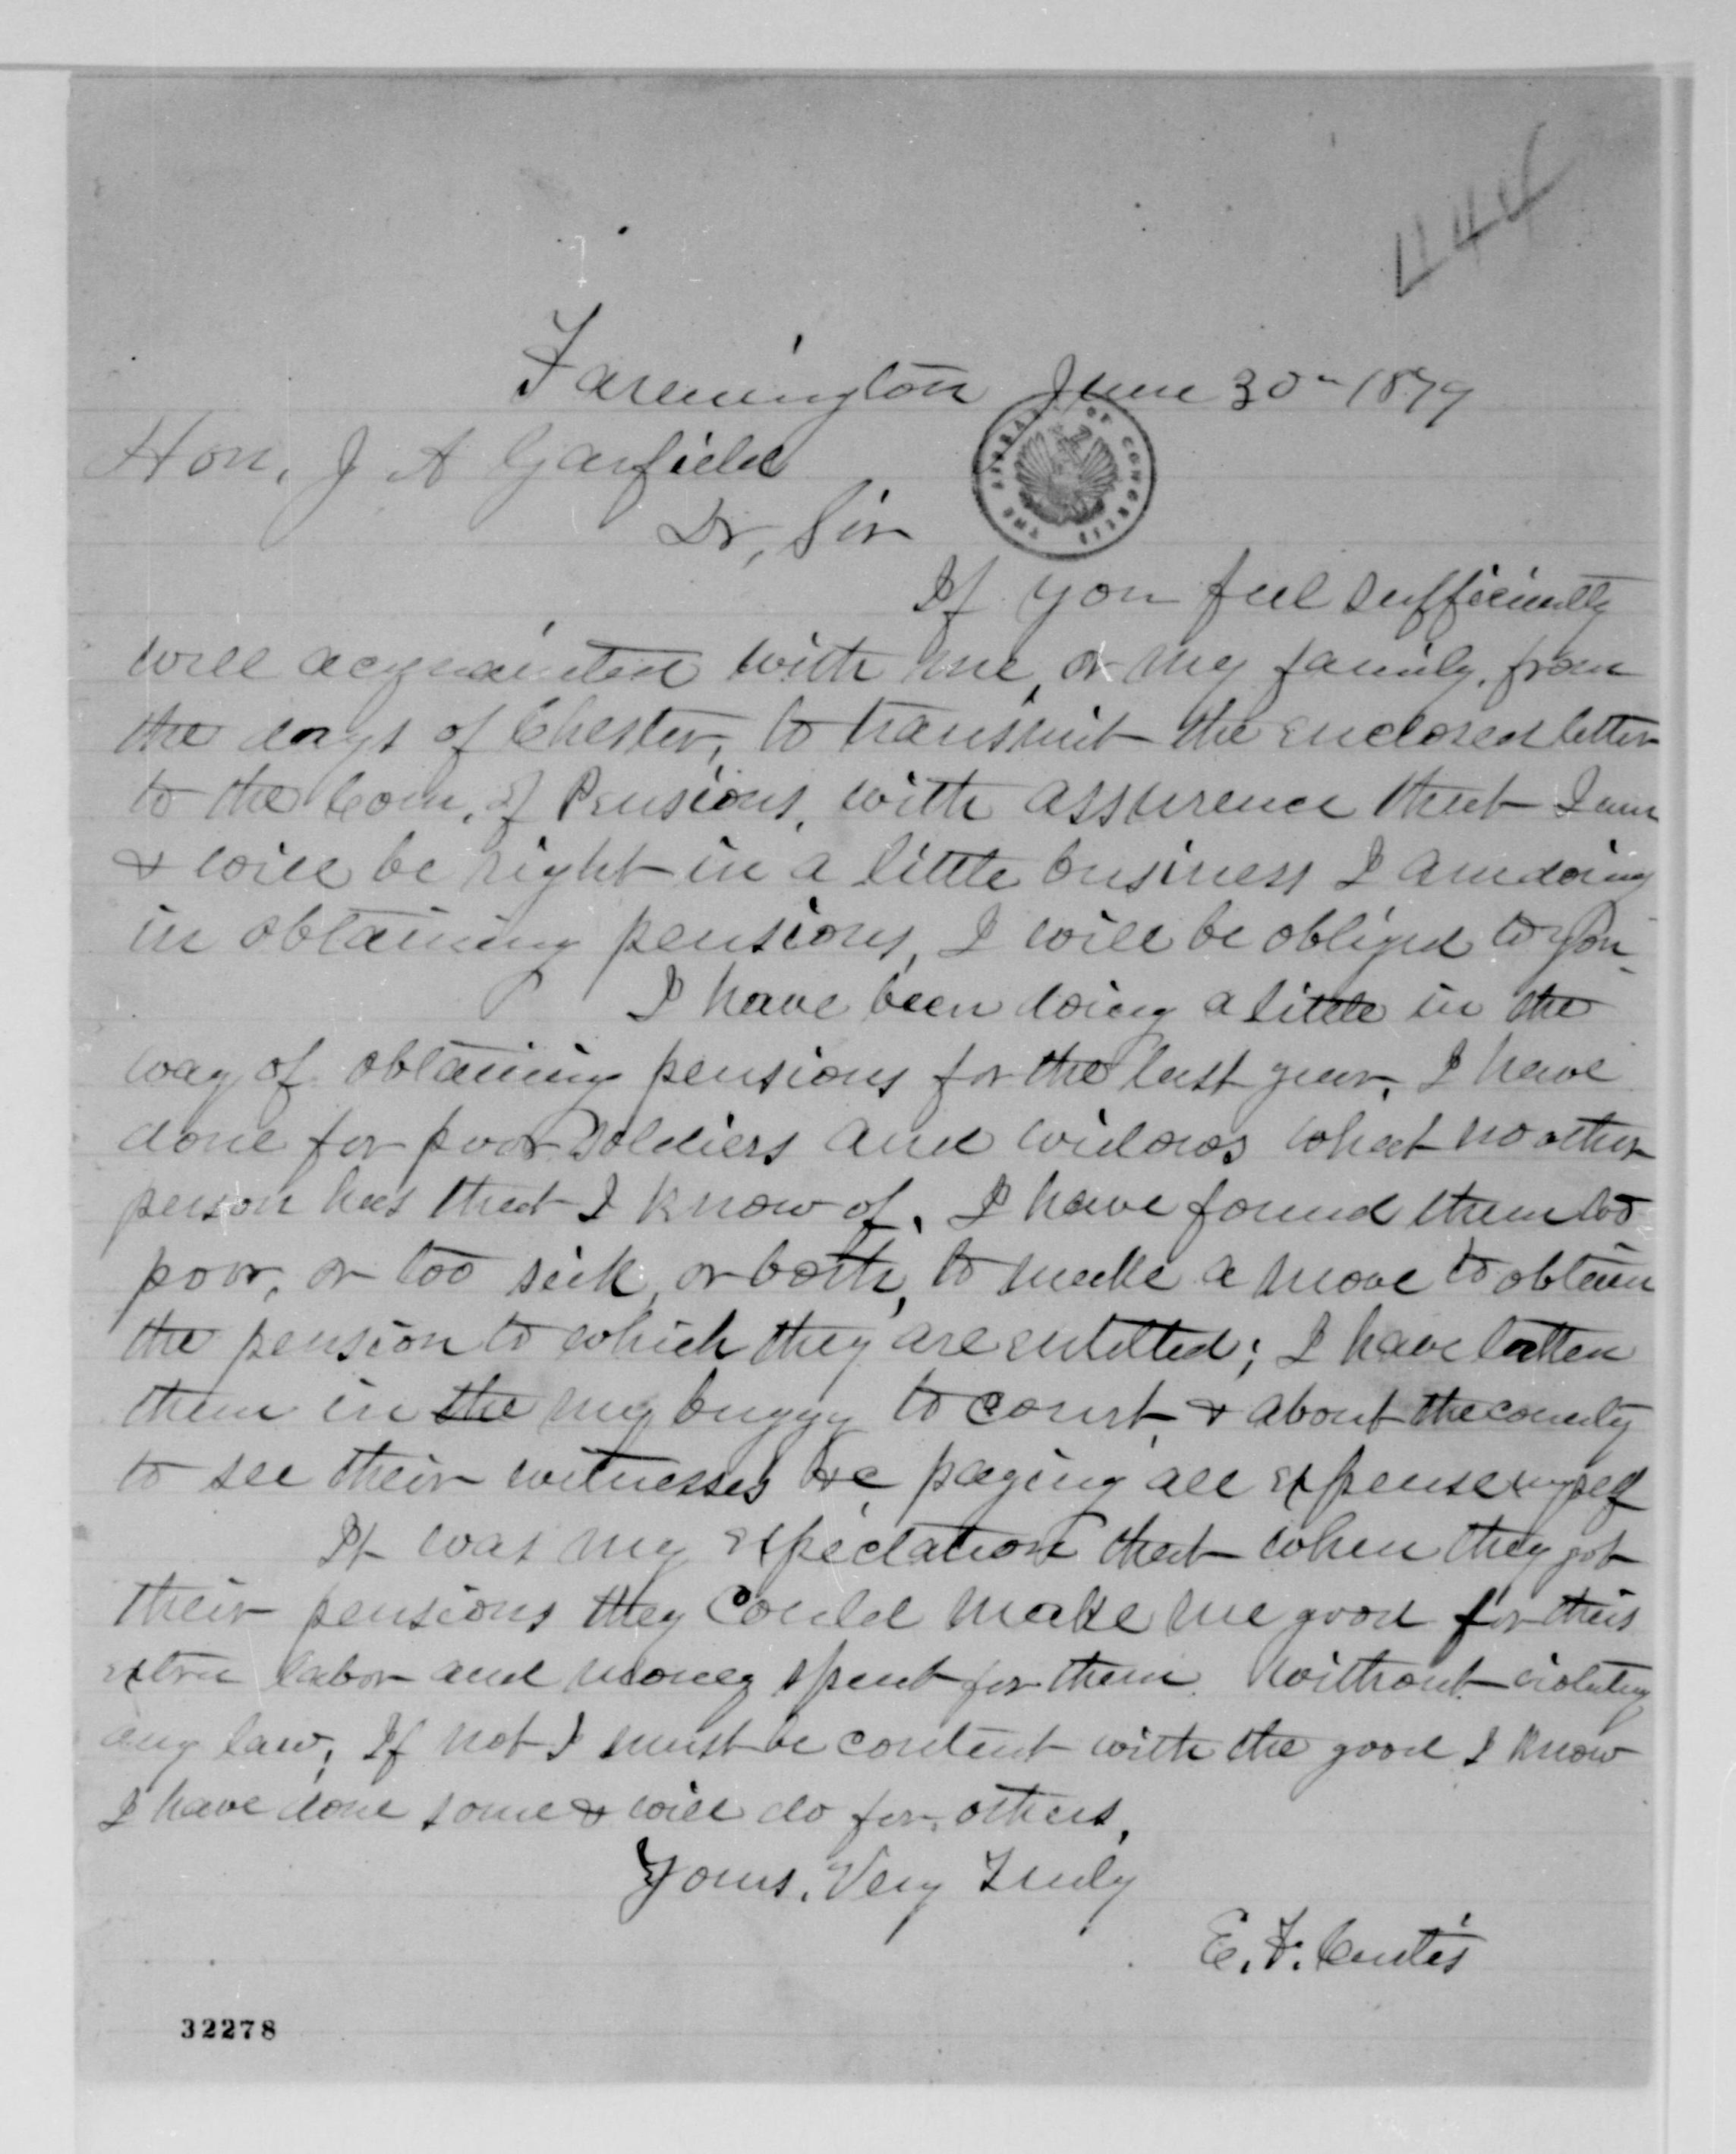 444
Farmington June 30th 1879
Hon. J A Garfield
Dr, Sir
THE LIBRARY OF CONGRESS
If you feel sufficiently
well acquainted with me, or my family, from
the days of Chester, to transmit the enclosed letter
to the Com, of Pensions, with assurence that I am
& will be right in a little business I am doing
in obtaining pensions, I will be obliged to you
I have been doing a little in the
way of obtaining pensions for the last year, I have
done for poor soldiers and widows what no other
person has that I know of. I have found them too
poor, or too sick, or both, to make a move to obtain
the pension to which they are entitled; I have taken
them in the my buggy to court, & about the county
to see their witnesses &c paying all expense myself
It was my expectation that when they got
their pensions they could make me good for this
extra labor and money spent for them without violating
any law; If not I must be content with the good I know
I have done some & will do for others,
Yours, Very Truly
E. F. Curtis
32278